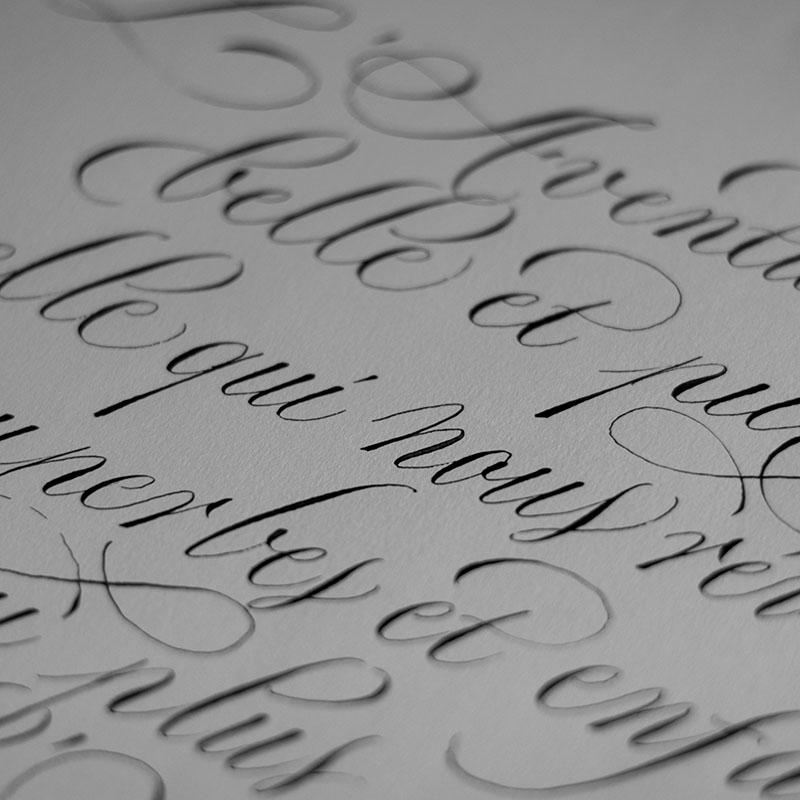 L'Aventu
belle et pui
elle qui nous ren
uperbes et enfa
plus